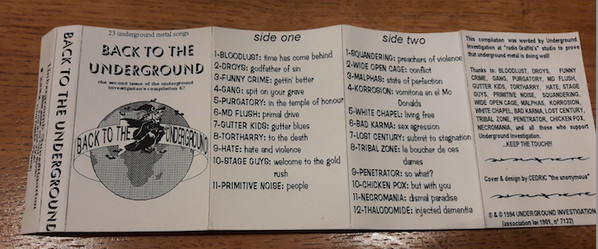 BACK TO THE UNDERGROUND
23 underground metal songs
BACK TO THE
UNDERGROUND
the second issue of the underground
investigation's compilation K7
BACK TO THE UNDERGROUND
side one
1-BLOODLUST: time has come behind
2-DROYS: godfather of sin
3-FUNNY CRIME: gettin' better
4-GANG: spit on your grave
5-PURGATORY: in the temple of honour
6-MD FLUSH: primal drive
7-GUTTER KIDS: gutter blues
8-TORTHARRY: to the death
9-HATE: hate and violence
10-STAGE GUYS: welcome to the gold
rush
11-PRIMITIVE NOISE: people
side two
1-SQUANDERING: preachers of violence
2-WIDE OPEN CAGE: conflict
3-MALPHAS: state of perfection
4-KORROSION: vomitona en el Mo
Donalds
5-WHITE CHAPEL: living free
6-BAD KARMA: sex agression
7-LOST CENTURY: submit to stagnation
8-TRIBAL ZONE: le boucher de ces
dames
9-PENETRATOR: so what?
10-CHICKEN POX: but with you
11-NECROMANIA: dismal paradise
12-THALODOMIDE: injected dementia
This compilation was worded by Underground
Investigation at "radio Graffiti's" studio to prove
that underground metal is doing well!
Thanks to: BLOODLUST, DROYS, FUNNY
CRIME, GANG, PURGATORY, MD FLUSH,
GUTTER KIDS, TORTHARRY, HATE, STAGE
GUYS, PRIMITIVE NOISE, SQUANDERING,
WIDE OPEN CAGE, MALPHAS, KORROSION,
WHITE CHAPEL, BAD KARMA, LOST CENTURY,
TRIBAL ZONE, PENETRATOR, CHICKEN POX,
NECROMANIA, and all those who support
Underground Investigation.
...KEEP THE TOUCH!!!
Cover & design by CEDRIC "the anonymous"
© & ® 1994 UNDERGROUND INVESTIGATION
(association loi 1901, n° 7132)